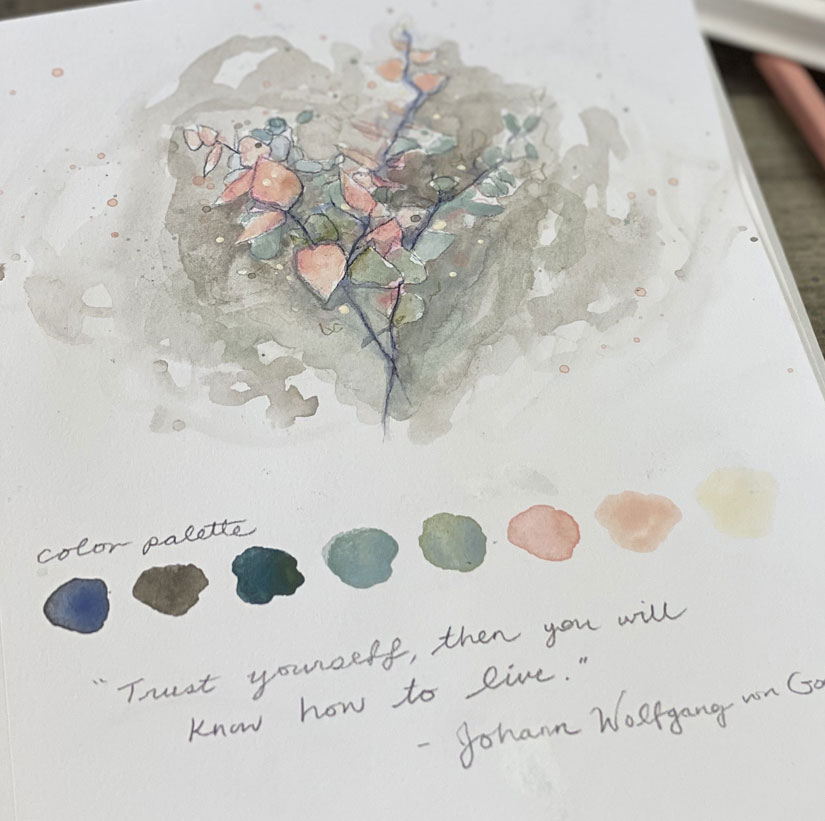 color palette
"Trust yourself, then you will
know how to live."
- Johann Wolfgang von